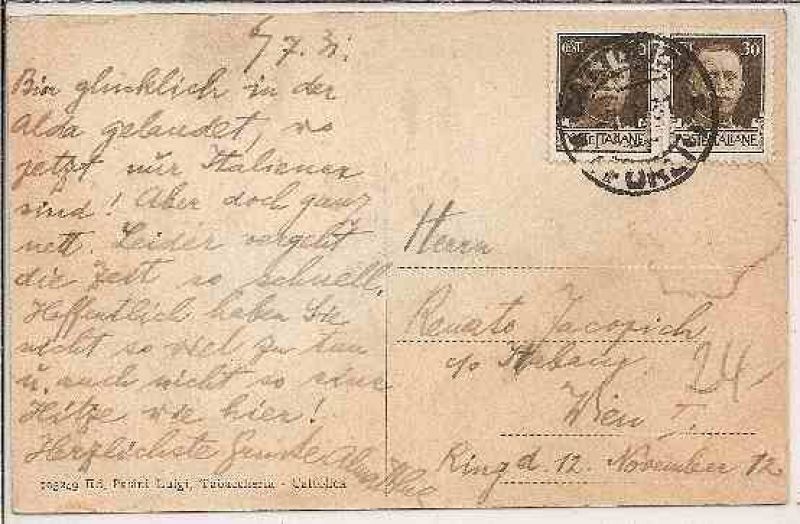 7.31.
Bin glücklich in der
Alda gelandet, wo
jetzt nur Italiener
sind! Aber doch ganz
nett. Leider vergeht
die Zeit so schnell.
Hoffentlich haben Sie
nicht so viel zu tun
u. auch nicht so eine
Hitze wie hier!
Herzlichste Grüsse
Ed. Parini Luigi, Tabaccheria - Cattolica
CENT.
30
POSTE ITALIANE
POSTE ITALIANE
FORLI
Herrn
Renato Jacopich
c/o
Wien I.
24
Ring d. 12. November 12